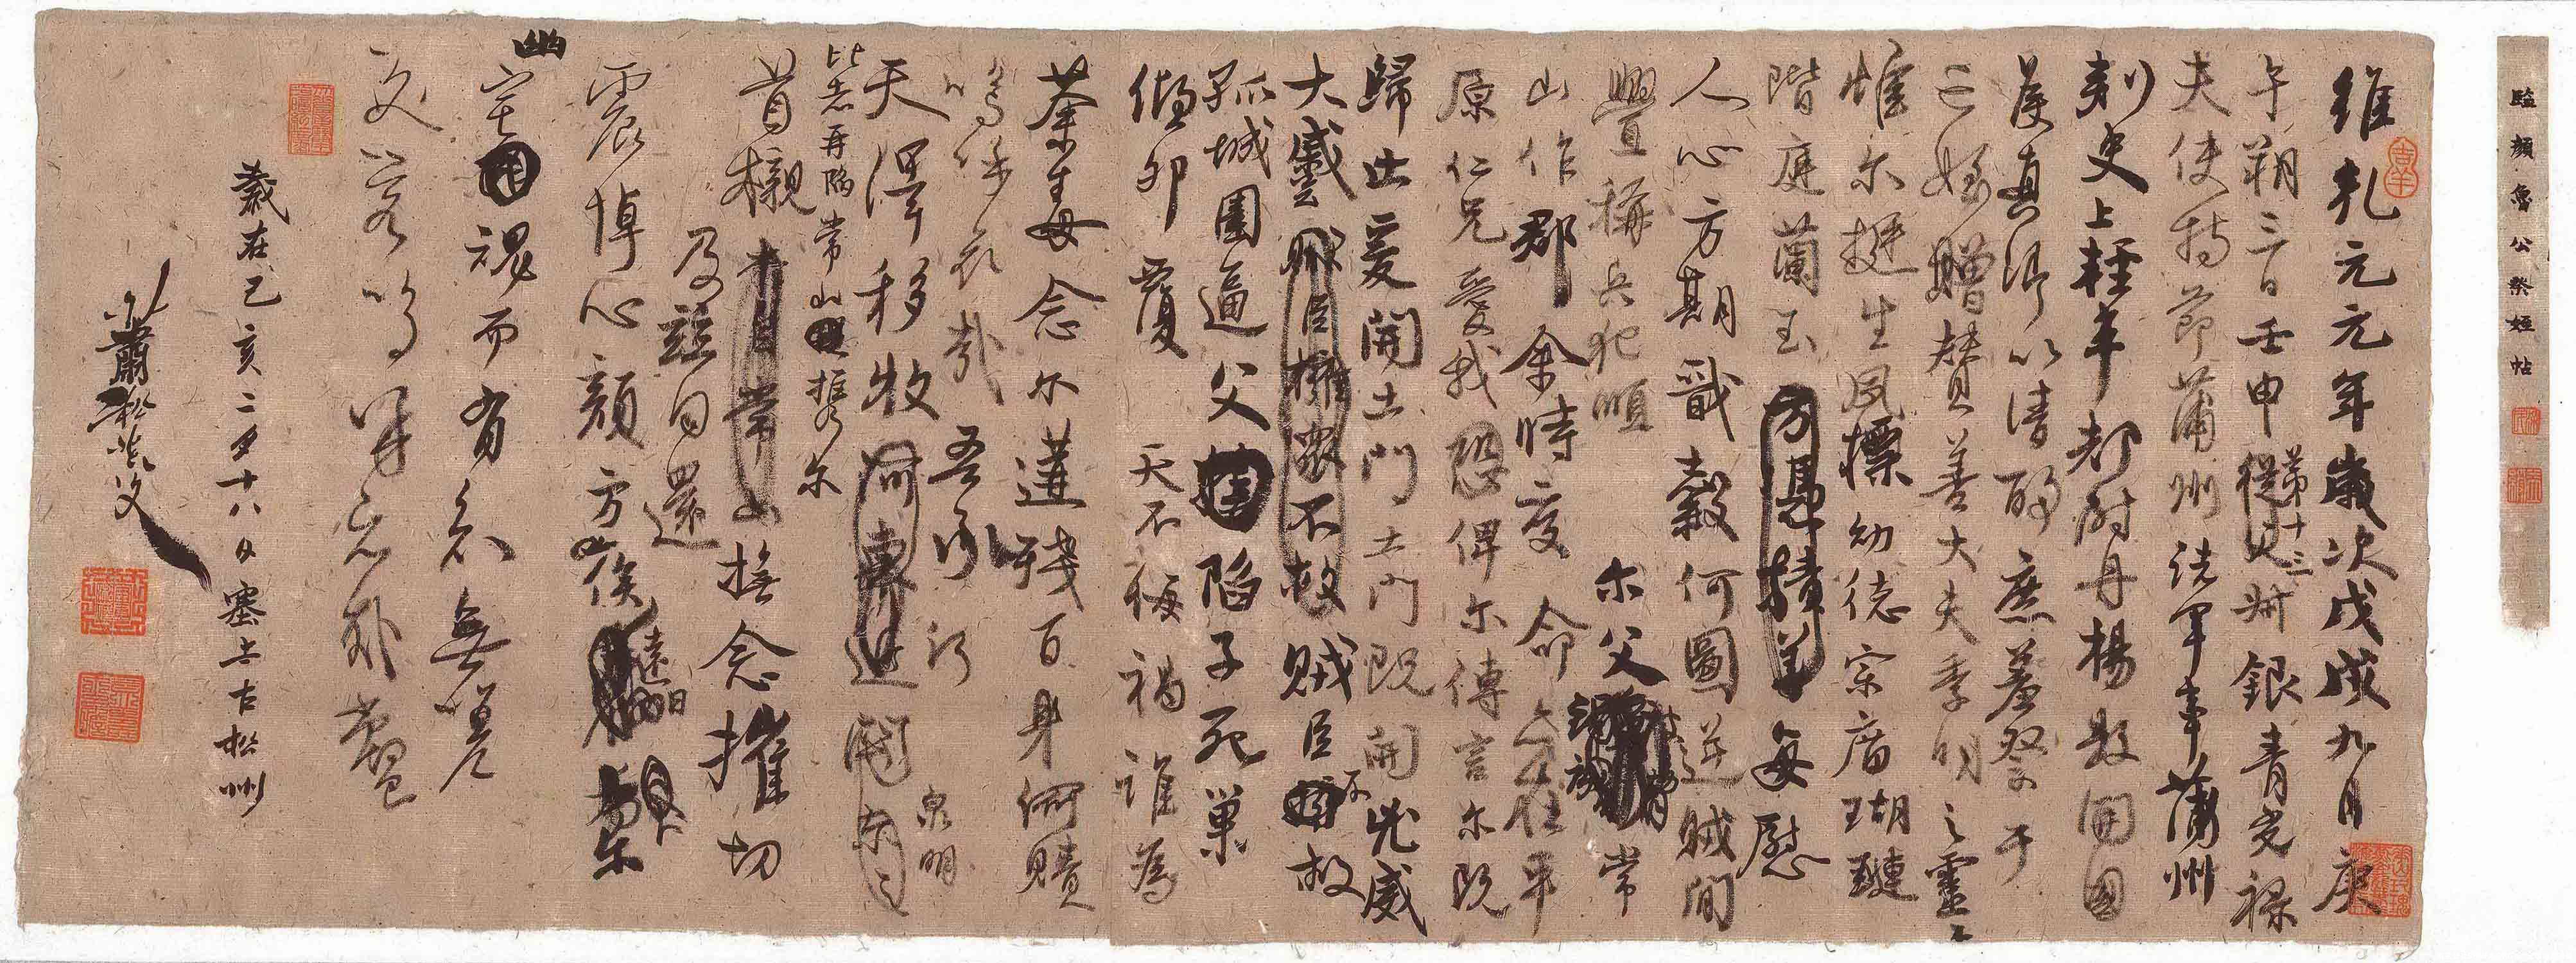 臨顏魯公祭姪帖
維乾元元年歲次戊戌九月庚
午朔三日壬申第十三從父叔銀青光祿
夫使持節蒲州諸軍事蒲州
刺史上輕車都尉丹楊縣開國
侯真卿以清酌庶羞祭于
亡姪贈贊善大夫季明之靈
惟尔挺生夙標幼德宗廟瑚璉
階庭蘭玉方憑積善每慰
人心方期戩穀何圖逆賊閒
舋稱兵犯順尔父常
山作郡余時受命亦在平
原仁兄愛我恐俾尔傳言尔既
歸止爰開土門土門既開兇威
大蹙賊臣擁衆不救賊臣不救
孤城圍逼父陷子死巢
傾卵覆天不悔禍誰為
荼毒念尔遘殘百身何贖
嗚呼哀哉吾承
天澤移牧河東近泉明
比者再陷常山攜尔
首櫬常山撫念摧切
及茲同還
震悼心顏方俟遠日卜尔
幽宅魂而有知無嗟
久客嗚呼哀哉尚饗
歲在己亥二月十八日塞上古松州